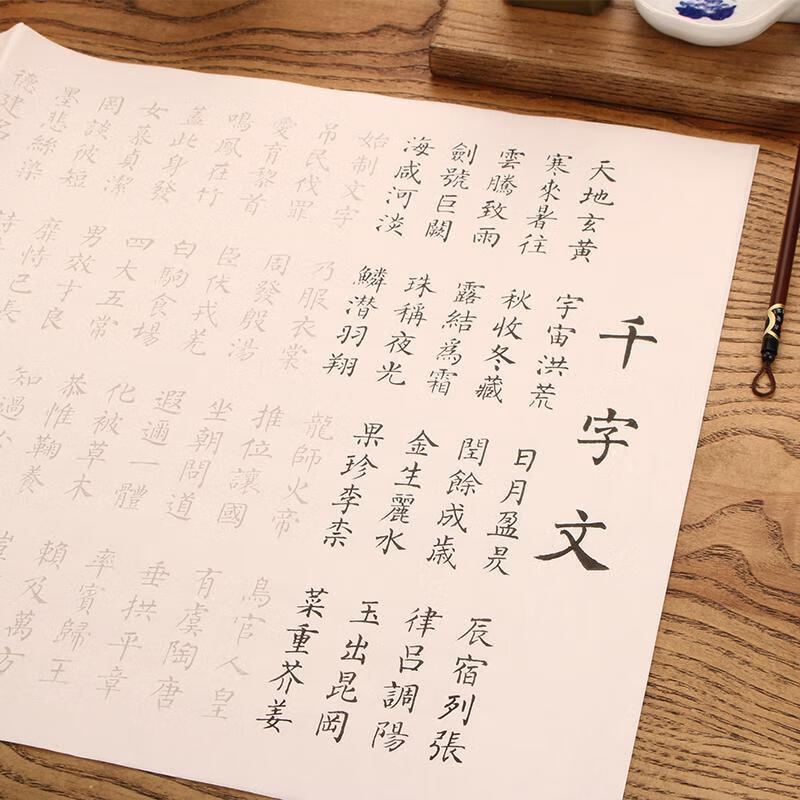 千字文
天地玄黃 宇宙洪荒 日月盈昃 辰宿列張
寒來暑往 秋收冬藏 閏餘成歳 律呂調陽
雲騰致雨 露結爲霜 金生麗水 玉出昆岡
劍號巨闕 珠稱夜光 果珍李柰 菜重芥姜
海咸河淡 鱗潜羽翔 龍師火帝 鳥官人皇
始制文字 乃服衣裳 推位讓國 有虞陶唐
吊民伐罪 周發殷湯 坐朝問道 垂拱平章
愛育黎首 臣伏戎羌 遐邇一體 率賓歸王
鳴鳳在竹 白駒食場 化被草木 賴及萬方
蓋此身發 四大五常 恭惟鞠養
女慕貞潔 男效才良 知過
岡談彼短 靡恃己長
墨悲絲染
德建名